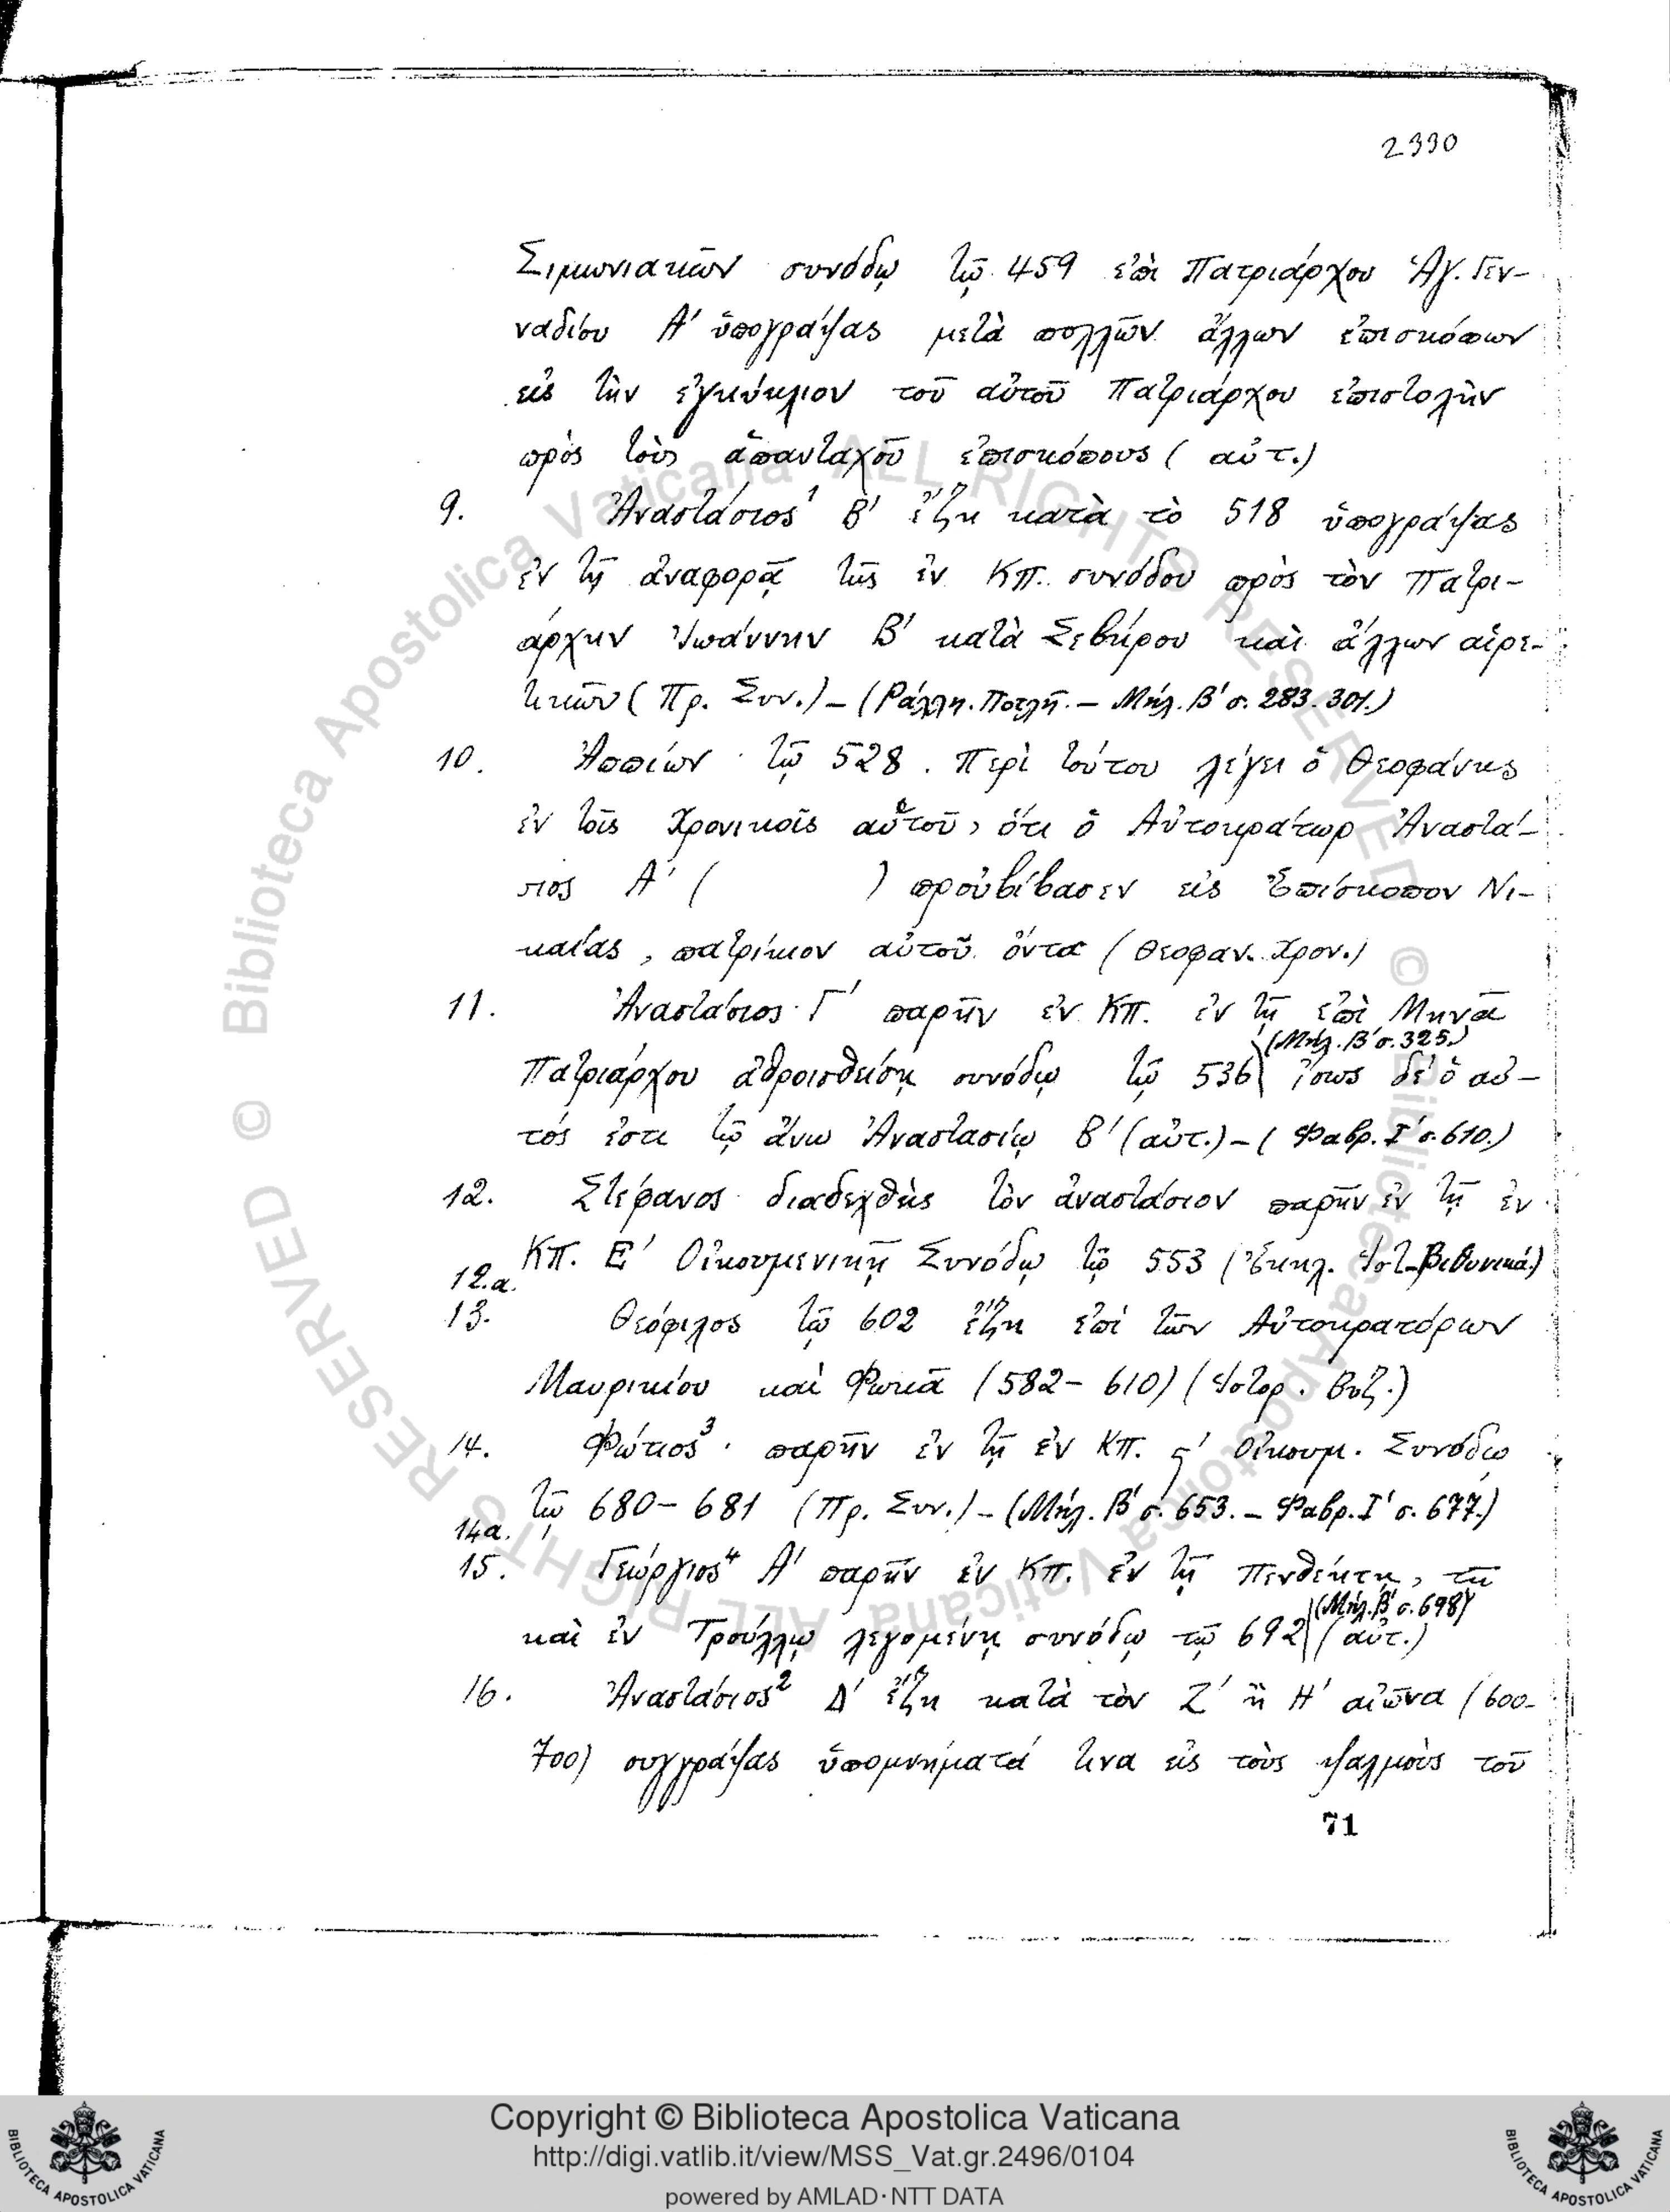 2330
Σιμωνιακῶν συνόδῳ τῷ 459 ἐπὶ Πατριάρχου Ἁγ. Γεν-
ναδίου Α' ὑπογράψας μετὰ πολλῶν ἄλλων ἐπισκόπων
εἰς τὴν ἐγκύκλιον τοῦ αὐτοῦ Πατριάρχου ἐπιστολὴν
πρὸς τοὺς ἁπανταχοῦ ἐπισκόπους (αὐτ.)
9. Ἀναστάσιος¹ Β' ἔζη κατὰ τὸ 518 ὑπογράψας
ἐν τῇ ἀναφορᾷ τῆς ἐν ΚΠ. συνόδου πρὸς τὸν Πατρι-
άρχην Ἰωάννην Β' κατὰ Σεβήρου καὶ ἄλλων αἱρε-
τικῶν (Πρ. Συν.) - (Ράλλη. Ποτλῆ. - Μήλ. Β' σ. 283. 301.)
10. Ἀππίων · τῷ 528. Περὶ τούτου λέγει ὁ Θεοφάνης
ἐν τοῖς Χρονικοῖς αὑτοῦ, ὅτι ὁ Αὐτοκράτωρ Ἀναστά-
σιος Α' ( ) προὐβίβασεν εἰς Ἐπίσκοπον Νι-
καίας, πατρίκιον αὐτοῦ ὄντα (Θεοφαν. Χρον.)
11. Ἀναστάσιος Γ' παρῆν ἐν ΚΠ. ἐν τῇ ἐπὶ Μηνᾶ
(Μήλ. Β' σ. 325.)
Πατριάρχου ἀθροισθείσῃ συνόδῳ τῷ 536 ἴσως δὲ ὁ αὐ-
τός ἐστι τῷ ἄνω Ἀναστασίῳ Β' (αὐτ.) - (Φαβρ. Ι' σ. 610.)
12. Στέφανος διαδεχθεὶς τὸν ἀναστάσιον παρῆν ἐν τῇ ἐν
ΚΠ. Ε' Οἰκουμενικῇ Συνόδῳ τῷ 553 (Ἐκκλ. Ἱστ. Βιθυνικά.)
12.α.
13. Θεόφιλος τῷ 602 ἔζη ἐπὶ τῶν Αὐτοκρατόρων
Μαυρικίου καὶ Φωκᾶ (582 - 610) (Ἱστορ. Βυζ.)
14. Φώτιος³ · παρῆν ἐν τῇ ἐν ΚΠ. ϛ' Οἰκουμ. Συνόδῳ
τῷ 680 - 681 (Πρ. Συν.) - (Μήλ. Β' σ. 653. - Φαβρ. Ι' σ. 677.)
14α.
15. Γεώργιος⁴ Α' παρῆν ἐν ΚΠ. ἐν τῇ Πενθέκτῃ, τῇ
(Μήλ. Β' σ. 698)
καὶ ἐν Τρούλλῳ λεγομένῃ συνόδῳ τῷ 692 (αὐτ.)
16. Ἀναστάσιος² Δ' ἔζη κατὰ τὸν Ζ' ἢ Η' αἰῶνα (600-
700) συγγράψας ὑπομνήματά τινα εἰς τοὺς ψαλμοὺς τοῦ
71
© Biblioteca Apostolica Vaticana ALL RIGHTS RESERVED © Biblioteca Apostolica Vaticana ALL RIGHTS RESERVED
Copyright © Biblioteca Apostolica Vaticana
http://digi.vatlib.it/view/MSS_Vat.gr.2496/0104
powered by AMLAD·NTT DATA
BIBLIOTECA APOSTOLICA VATICANA
BIBLIOTECA APOSTOLICA VATICANA